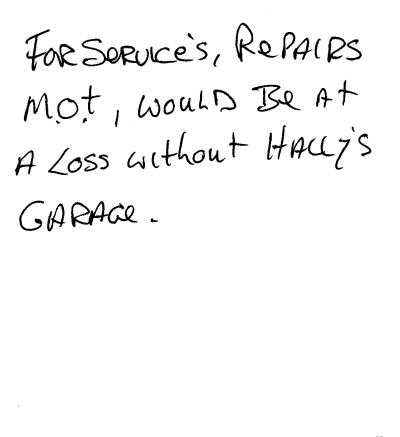 For Service's, Repairs
M.O.T, would Be At
A Loss without Hally's
Garage.